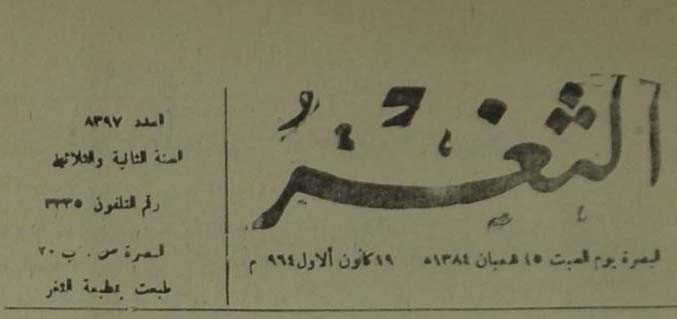 الثغر
البصرة يوم السبت ١٥ شعبان ١٣٨٤ه ١٩ كانون الاول ٩٦٤ م
العدد ٨٣٩٧
السنة الثانية والثلاثين
رقم التلفون ٣٣٣٥
البصرة ص . ب ٢٠
طبعت بمطبعة الثغر